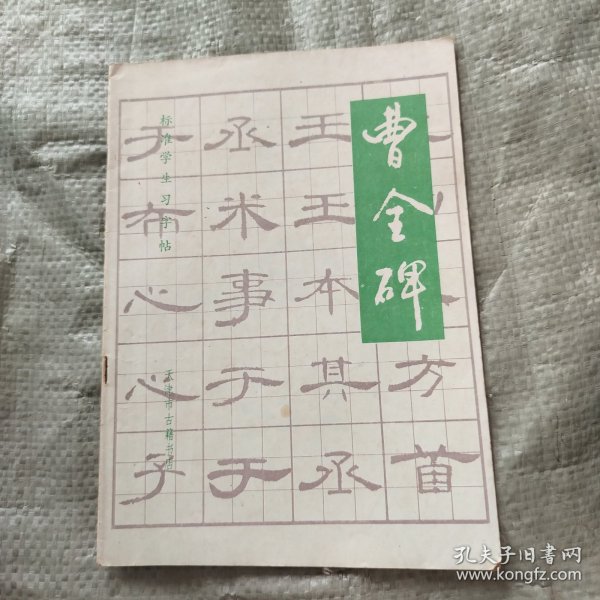 曹全碑
标准学生习字帖
天津市古籍书店
王王本其丞
丞米事于于
于布心心子
方苗
孔夫子旧书网
www.kongfz.com